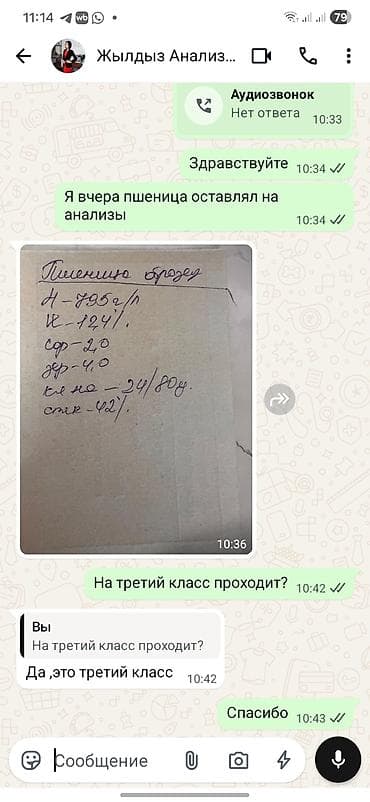 11:14
79
Жылдыз Анализ...
Аудиозвонок
Нет ответа 10:33
Здравствуйте 10:34
Я вчера пшеница оставлял на
анализы 10:34
Пшеница образец
Н-795г/л
W-12,4%.
сор-2,0
зер-4,0
кл на - 24/80у.
стк-42%.
10:36
На третий класс проходит? 10:42
Вы
На третий класс проходит?
Да ,это третий класс 10:42
Спасибо 10:43
Сообщение